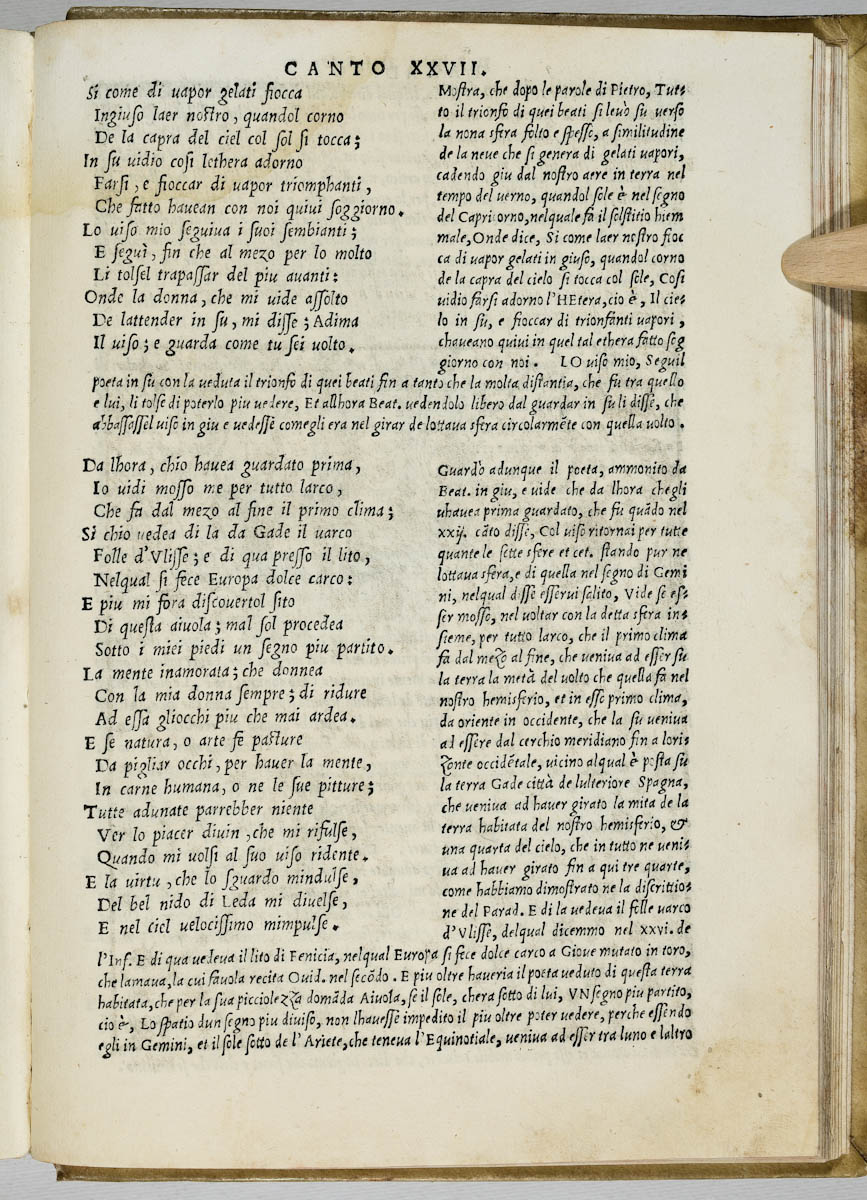 CANTO XXVII.
Si come di uapor gelati fiocca
Ingiuso laer nostro, quandol corno
De la capra del ciel col sol si tocca;
In su uidio cosi lethera adorno
Farsi, e fioccar di uapor triomphanti,
Che fatto hauean con noi quiui soggiorno.
Lo uiso mio seguiua i suoi sembianti;
E seguì, fin che al mezo per lo molto
Li tolsel trapassar del piu auanti:
Onde la donna, che mi uide assolto
De lattender in su, mi disse; Adima
Il uiso; e guarda come tu sei uolto.
Mostra, che dopo le parole di Pietro, Tut=
to il trionfo di quei beati si leuò su uerso
la nona sfera folto e spesso, a similitudine
de la neue che si genera di gelati uapori,
cadendo giu dal nostro aere in terra nel
tempo del uerno, quandol sole è nel segno
del Capricorno, nelquale fa il solstitio hiem
male, Onde dice, Si come laer nostro fioc
ca di uapor gelati in giuso, quandol corno
de la capra del cielo si tocca col sole, Cosi
uidio farsi adorno l'HEtera, cio è, Il cie=
lo in su, e fioccar di trionfanti uapori,
chaueano quiui in quel tal ethera fatto seg
giorno con noi. LO uiso mio, Seguil
poeta in su con la ueduta il trionfo di quei beati fin a tanto che la molta distantia, che fu tra quello
e lui, li tolse di poterlo piu uedere, Et allhora Beat. uedendolo libero dal guardar in su li disse, che
abbassassel uiso in giu e uedesse comegli era nel girar de lottaua sfera circolarmẽte con quella uolto.
Da lhora, chio hauea guardato prima,
Io uidi mosso me per tutto larco,
Che fa dal mezo al fine il primo clima;
Si chio uedea di la da Gade il uarco
Folle d'Vlisse; e di qua presso il lito,
Nelqual si fece Europa dolce carco:
E piu mi fora discouertol sito
Di questa aiuola; mal sol procedea
Sotto i miei piedi un segno piu partito.
La mente inamorata; che donnea
Con la mia donna sempre; di ridure
Ad essa gliocchi piu che mai ardea.
E se natura, o arte fe pasture
Da pigliar occhi, per hauer la mente,
In carne humana, o ne le sue pitture;
Tutte adunate parrebber niente
Ver lo piacer diuin, che mi rifulse,
Quando mi uolsi al suo uiso ridente.
E la uirtu, che lo sguardo mindulse,
Del bel nido di Leda mi diuelse,
E nel ciel uelocissimo mimpulse.
Guardò adunque il poeta, ammonito da
Beat. in giu, e uide che da lhora chegli
uhauea prima guardato, che fu quãdo nel
xxij. cãto disse, Col uiso ritornai per tutte
quante le sette sfere et cet. stando pur ne
lottaua sfera, e di quella nel segno di Gemi
ni, nelqual disse esserui salito, Vide se es=
ser mosso, nel uoltar con la detta sfera in=
sieme, per tutto larco, che il primo clima
fa dal mezo al fine, che ueniua ad esser su
la terra la metà del uolto che quella fa nel
nostro hemisferio, et in esso primo clima,
da oriente in occidente, che la su ueniua
ad essere dal cerchio meridiano fin a lori=
zonte occidẽtale, uicino alqual è posta su
la terra Gade città de lulteriore Spagna,
che ueniua ad hauer girato la mita de la
terra habitata del nostro hemisferio, &
una quarta del cielo, che in tutto ne ueni=
ua ad hauer girato fin a qui tre quarte,
come habbiamo dimostrato ne la discrittio=
ne del Parad. E di la uedeua il folle uarco
d'Vlisse, delqual dicemmo nel xxvi. de
l'Inf. E di qua uedeua il lito di Fenicia, nelqual Europa si fece dolce carco a Gioue mutato in toro,
che lamaua, la cui fauola recita Ouid. nel secõdo. E piu oltre haueria il poeta ueduto di questa terra
habitata, che per la sua picciolezza domãda Aiuola, se il sole, chera sotto di lui, VN segno piu partito,
cio è, Lo spatio dun segno piu diuiso, non lhauesse impedito il piu oltre poter uedere, perche essendo
egli in Gemini, et il sole sotto de l'Ariete, che teneua l'Equinotiale, ueniua ad esser tra luno e laltro